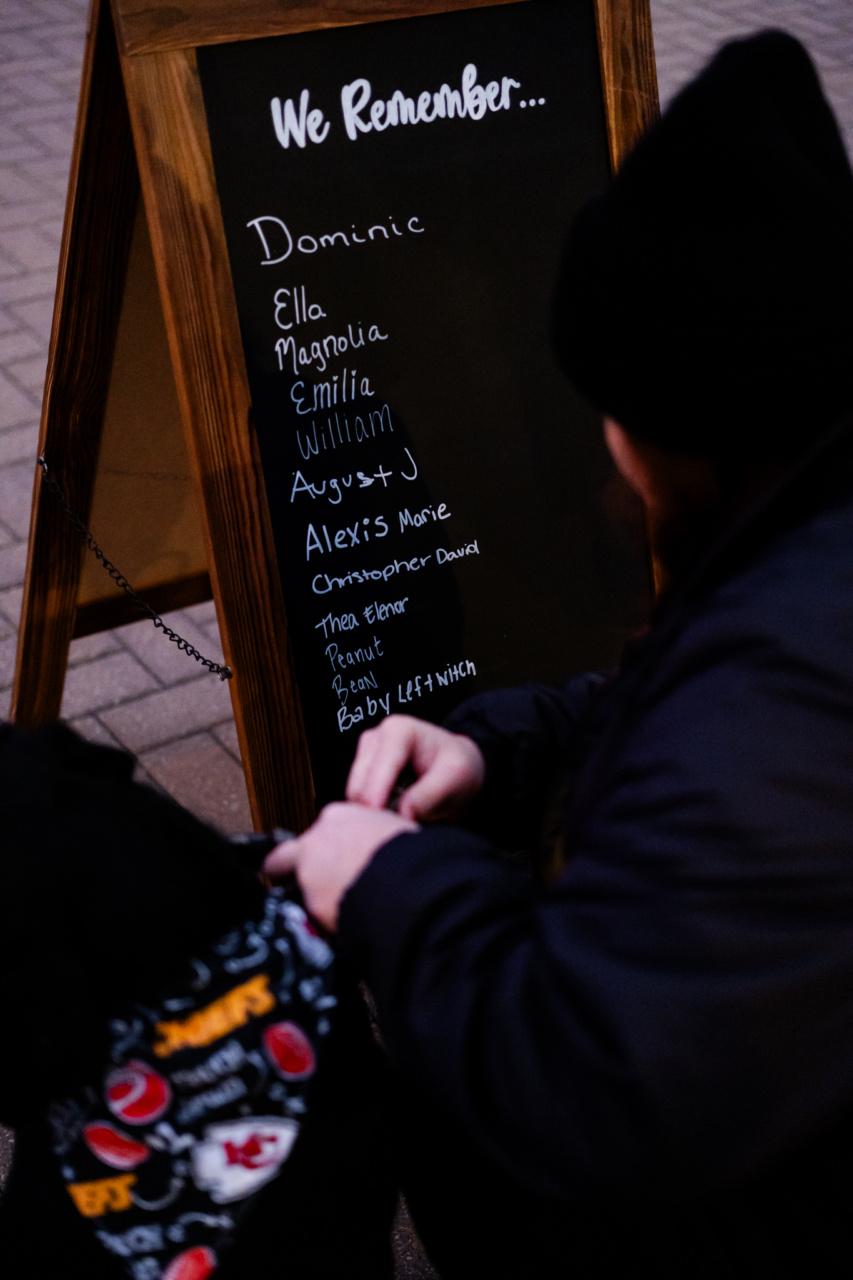 We Remember...
Dominic
Ella
Magnolia
Emilia
William
August J
Alexis Marie
Christopher David
Thea Elenor
Peanut
Bean
Baby Leftwich